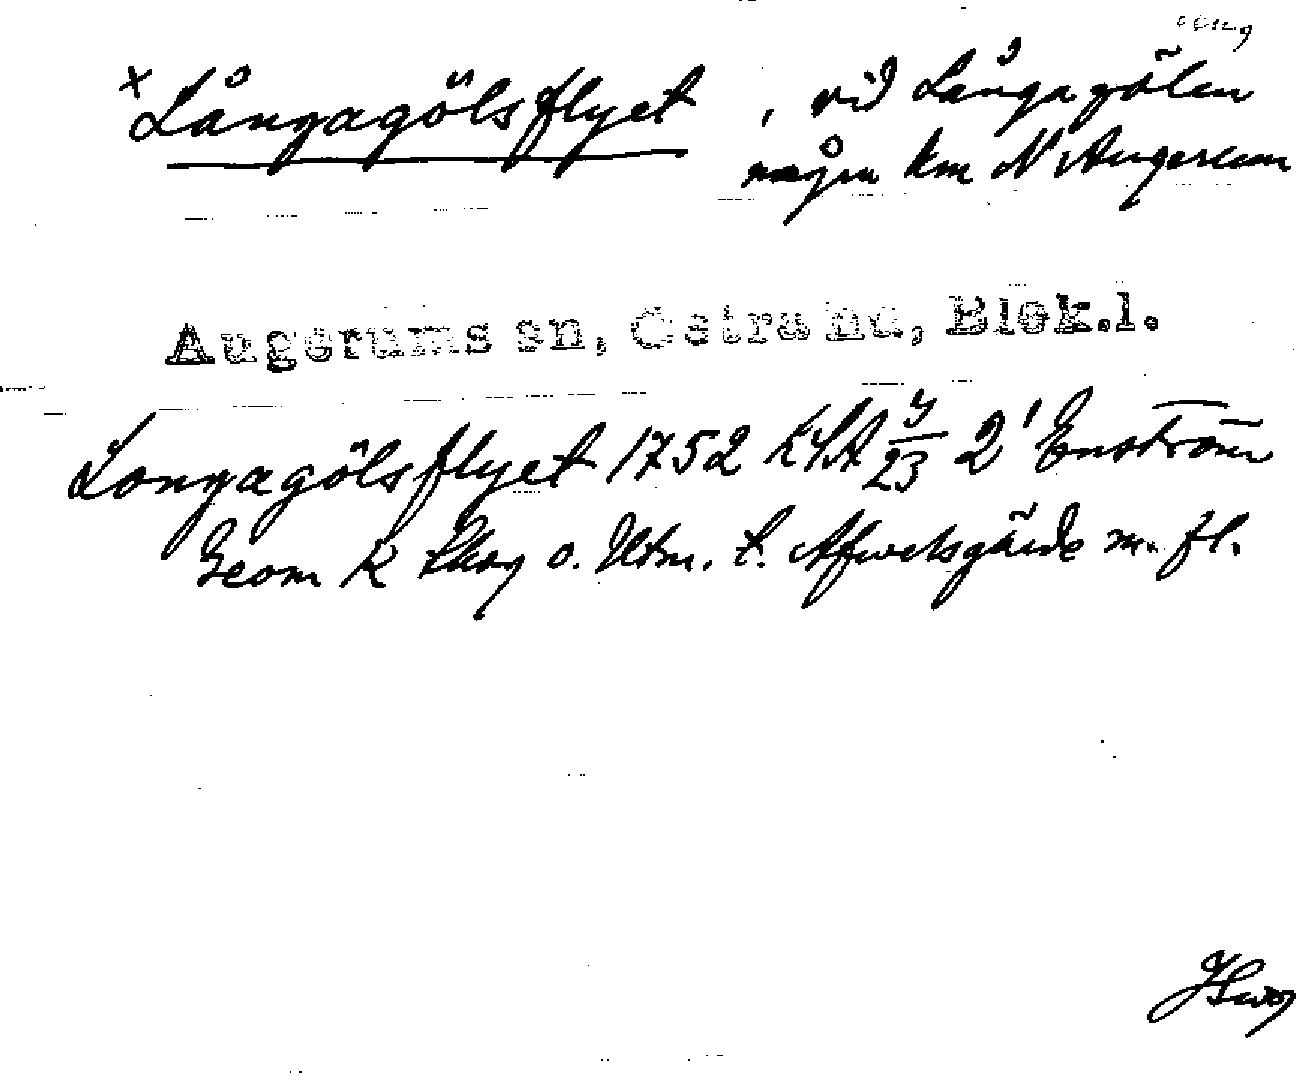 × Långagölsflyet, vid Långagölen
någon km N Augerum
Augerums sn, Östra hd, Blek.l.
Longagölsflyet 1752 LSA 2 Enström
Geom K Skog o. Utm. t. Afvelsgärde m.fl.